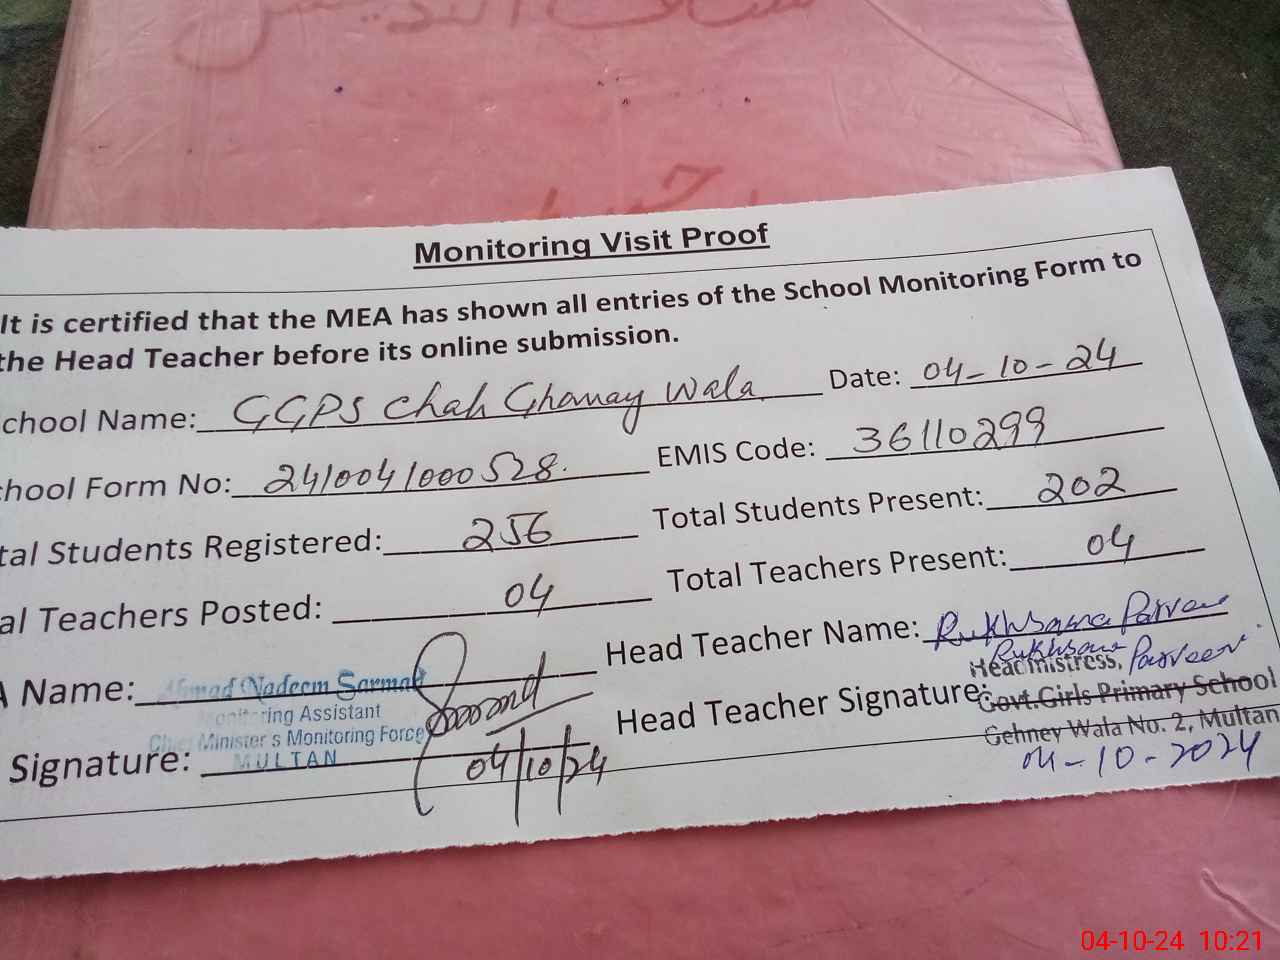 Monitoring Visit Proof
It is certified that the MEA has shown all entries of the School Monitoring Form to
the Head Teacher before its online submission.
chool Name: GGPS Chah Ghanay Wala Date: 04-10-24
hool Form No: 2410041000528. EMIS Code: 36110299
tal Students Registered: 256 Total Students Present: 202
al Teachers Posted: 04 Total Teachers Present: 04
A Name: Ahmad Nadeem Sarmad Head Teacher Name: Rukhsana Parveen
Monitoring Assistant
Chief Minister s Monitoring Force
MULTAN
Signature: 04/10/24
Head Teacher Signature: Rukhsana Parveen
Headmistress,
Govt.Girls Primary School
Gehney Wala No. 2, Multan
04-10-2024
04-10-24 10:21